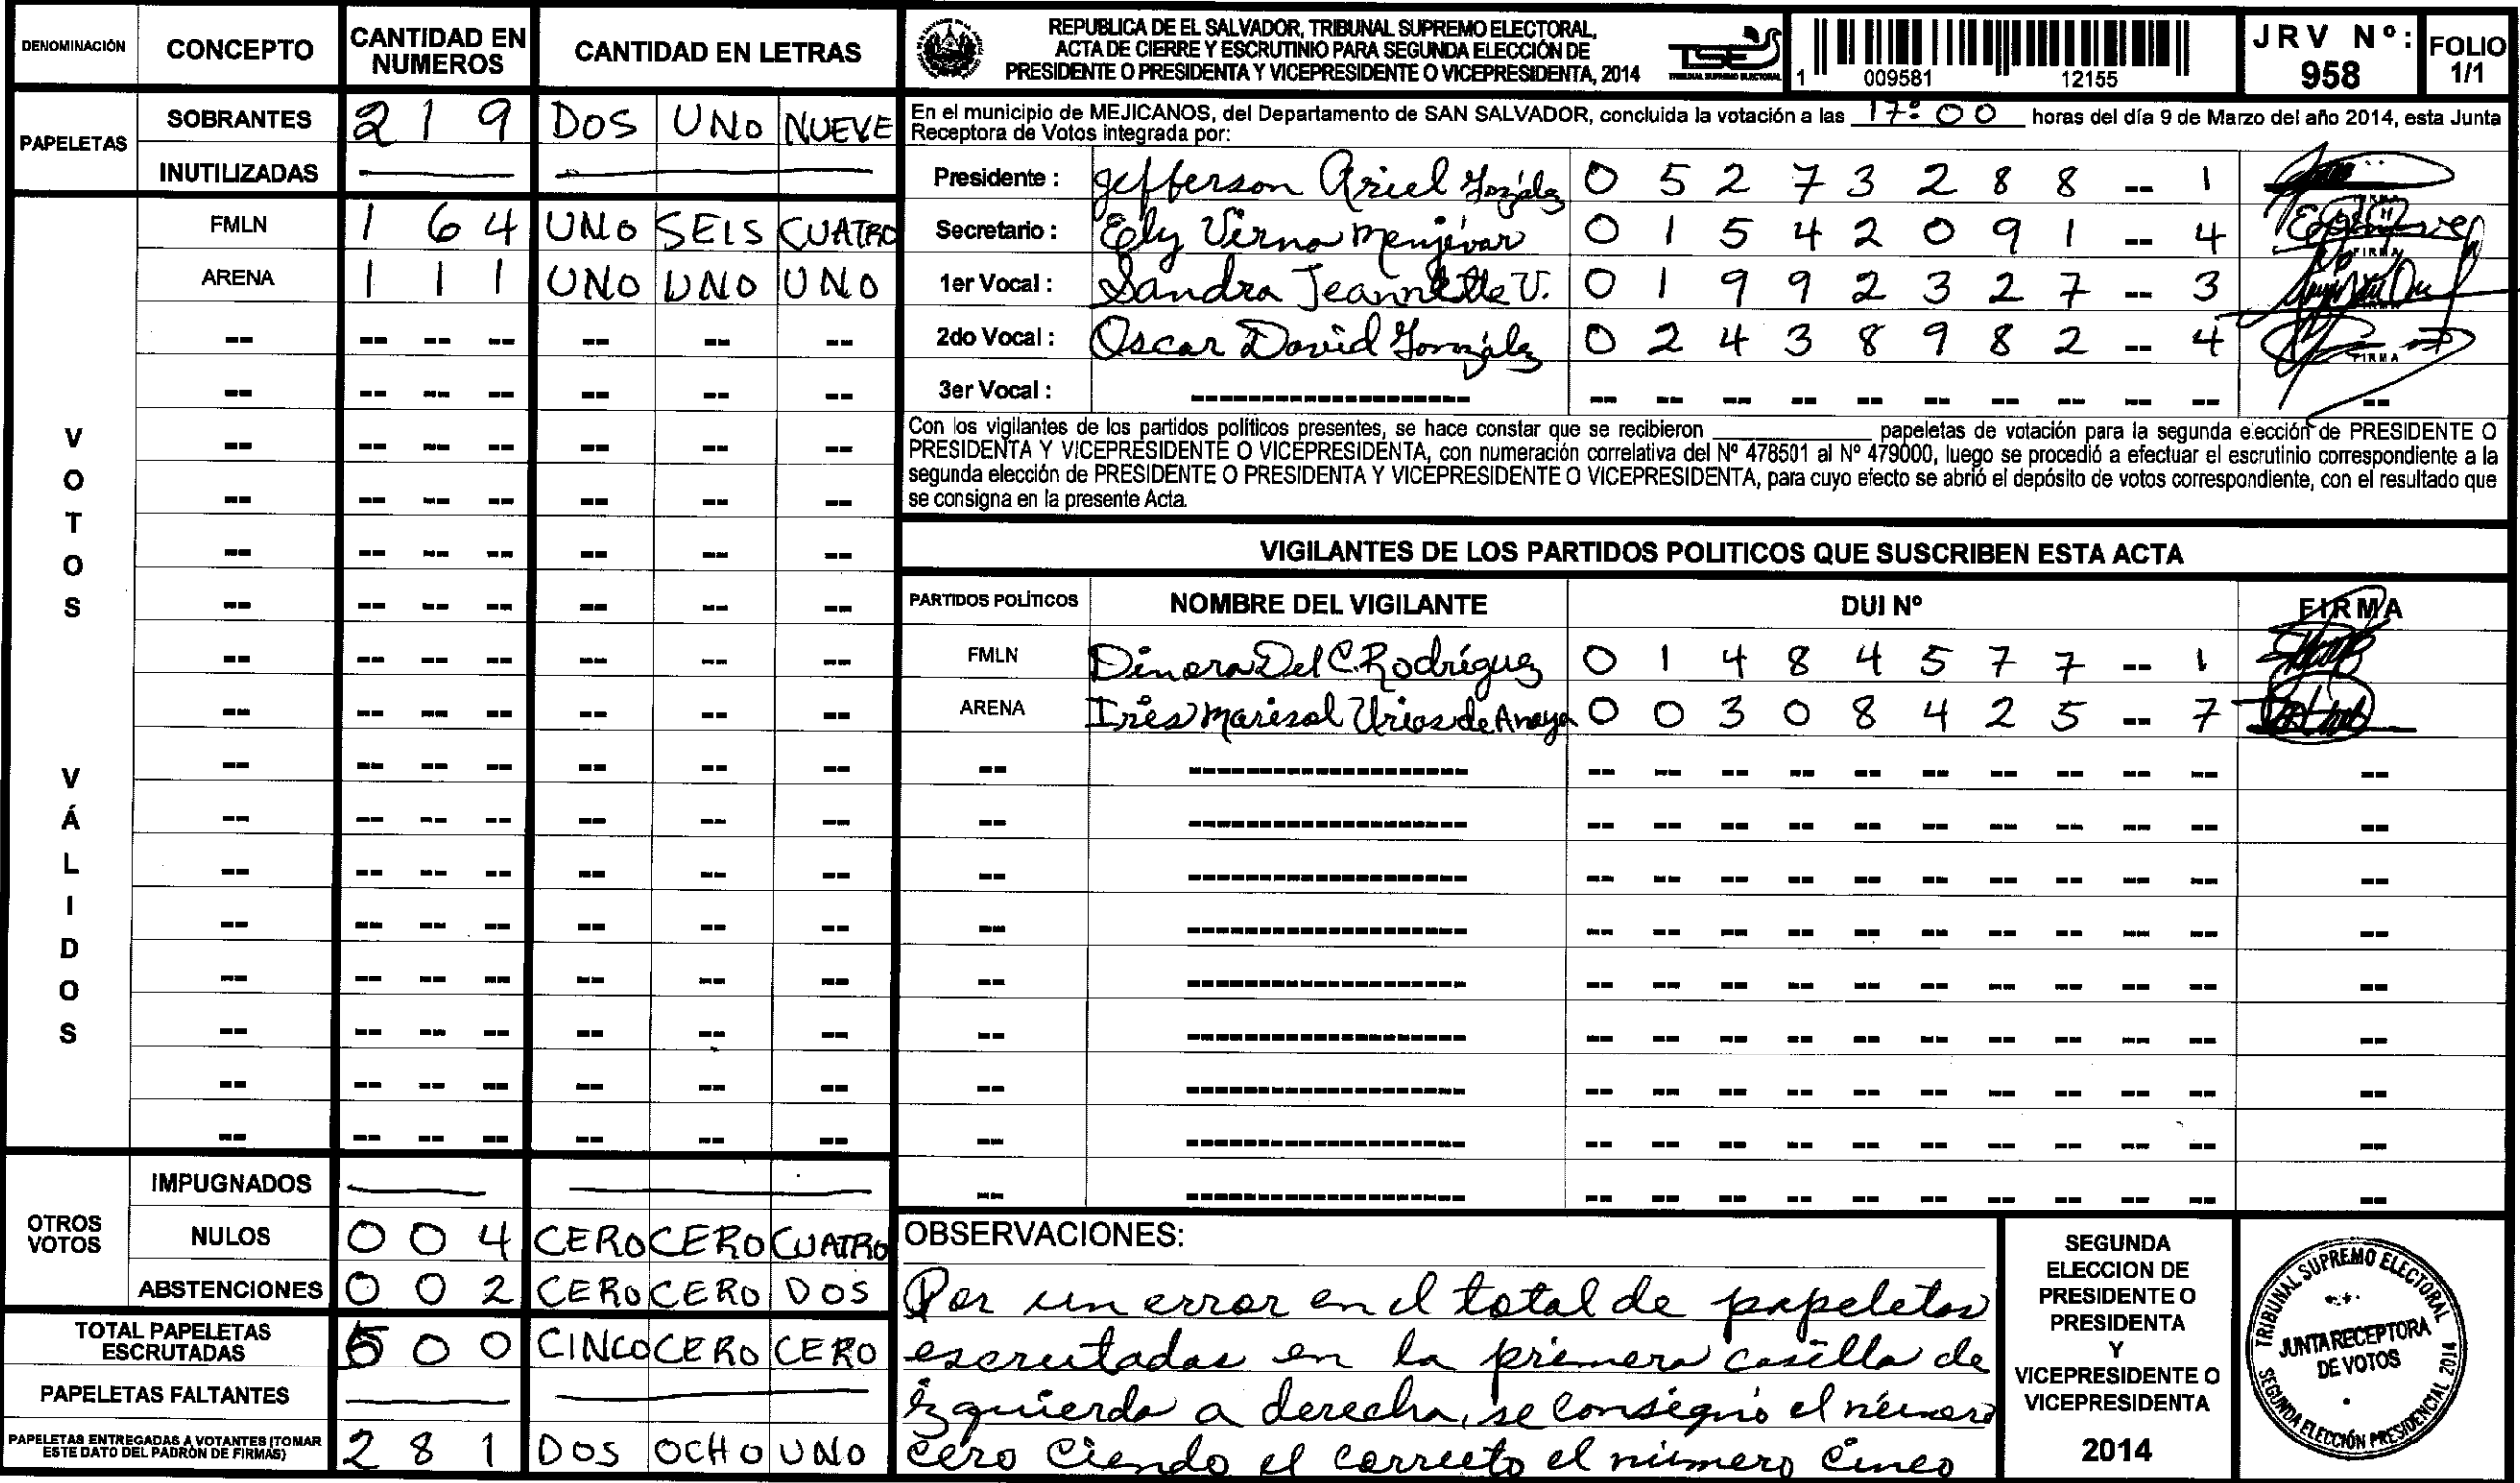 DENOMINACIÓN CONCEPTO CANTIDAD EN NUMEROS CANTIDAD EN LETRAS
PAPELETAS
SOBRANTES 2 1 9 DOS UNO NUEVE
INUTILIZADAS
VOTOS VÁLIDOS
FMLN 1 6 4 UNO SEIS CUATRO
ARENA 1 1 1 UNO UNO UNO
OTROS VOTOS
IMPUGNADOS
NULOS 0 0 4 CERO CERO CUATRO
ABSTENCIONES 0 0 2 CERO CERO DOS
TOTAL PAPELETAS ESCRUTADAS 5 0 0 CINCO CERO CERO
PAPELETAS FALTANTES
PAPELETAS ENTREGADAS A VOTANTES (TOMAR ESTE DATO DEL PADRÓN DE FIRMAS) 2 8 1 DOS OCHO UNO
REPUBLICA DE EL SALVADOR, TRIBUNAL SUPREMO ELECTORAL,
ACTA DE CIERRE Y ESCRUTINIO PARA SEGUNDA ELECCIÓN DE
PRESIDENTE O PRESIDENTA Y VICEPRESIDENTE O VICEPRESIDENTA, 2014
TSE
TRIBUNAL SUPREMO ELECTORAL
1 009581 12155
JRV Nº: 958
FOLIO 1/1
En el municipio de MEJICANOS, del Departamento de SAN SALVADOR, concluida la votación a las 17:00 horas del día 9 de Marzo del año 2014, esta Junta
Receptora de Votos integrada por:
Presidente : Jefferson Ariel González 0 5 2 7 3 2 8 8 -- 1
Secretario : Ely Virna Menjívar 0 1 5 4 2 0 9 1 -- 4
FIRMA
1er Vocal : Sandra Jeannette V. 0 1 9 9 2 3 2 7 -- 3
2do Vocal : Oscar David González 0 2 4 3 8 9 8 2 -- 4
FIRMA
3er Vocal :
Con los vigilantes de los partidos políticos presentes, se hace constar que se recibieron ________ papeletas de votación para la segunda elección de PRESIDENTE O
PRESIDENTA Y VICEPRESIDENTE O VICEPRESIDENTA, con numeración correlativa del Nº 478501 al Nº 479000, luego se procedió a efectuar el escrutinio correspondiente a la
segunda elección de PRESIDENTE O PRESIDENTA Y VICEPRESIDENTE O VICEPRESIDENTA, para cuyo efecto se abrió el depósito de votos correspondiente, con el resultado que
se consigna en la presente Acta.
VIGILANTES DE LOS PARTIDOS POLITICOS QUE SUSCRIBEN ESTA ACTA
PARTIDOS POLÍTICOS NOMBRE DEL VIGILANTE DUI Nº FIRMA
FMLN Dinora Del C. Rodríguez 0 1 4 8 4 5 7 7 -- 1
ARENA Iris Marisol Urias de Anaya 0 0 3 0 8 4 2 5 -- 7
OBSERVACIONES:
Por un error en el total de papeletas
escrutadas en la primera casilla de
izquierda a derecha, se consignó el número
cero ciendo el correcto el número cinco
SEGUNDA
ELECCION DE
PRESIDENTE O
PRESIDENTA
Y
VICEPRESIDENTE O
VICEPRESIDENTA
2014
TRIBUNAL SUPREMO ELECTORAL
JUNTA RECEPTORA
DE VOTOS
SEGUNDA ELECCIÓN PRESIDENCIAL 2014